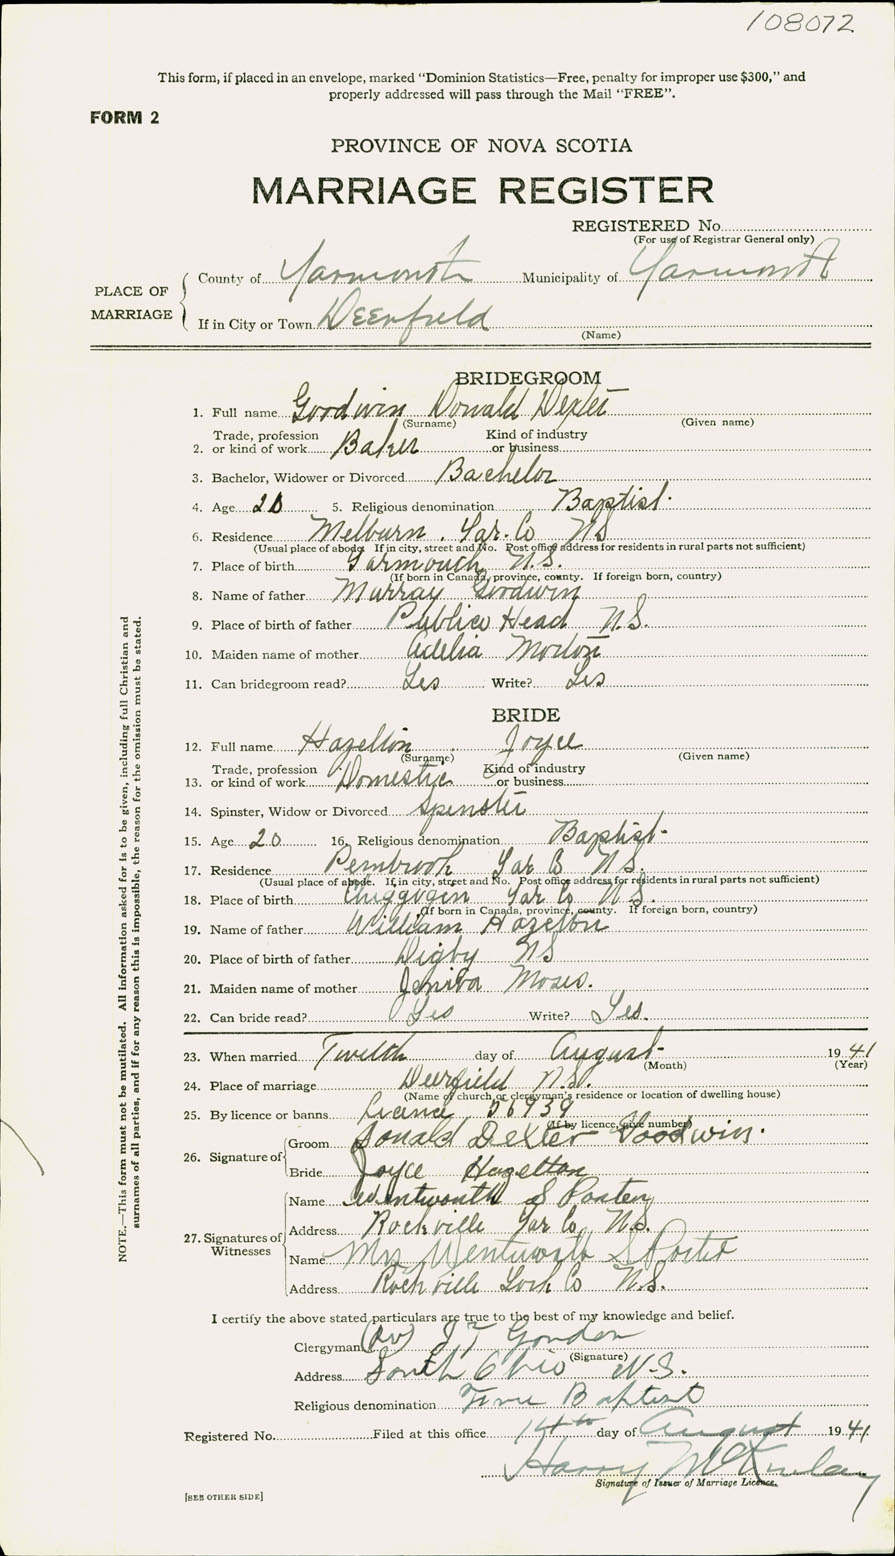 108072
This form, if placed in an envelope, marked “Dominion Statistics—Free, penalty for improper use $300,” and
properly addressed will pass through the Mail “FREE”.
FORM 2
PROVINCE OF NOVA SCOTIA
MARRIAGE REGISTER
REGISTERED No.
(For use of Registrar General only)
PLACE OF MARRIAGE
County of Yarmouth Municipality of Yarmouth
If in City or Town Deerfield
(Name)
BRIDEGROOM
1. Full name Goodwin Donald Dexter
(Surname) (Given name)
2. Trade, profession or kind of work Baker Kind of industry or business
3. Bachelor, Widower or Divorced Bachelor
4. Age 20 5. Religious denomination Baptist
6. Residence Melburn. Yar. Co NS
(Usual place of abode. If in city, street and No. Post office address for residents in rural parts not sufficient)
7. Place of birth Yarmouth N.S.
(If born in Canada, province, county. If foreign born, country)
8. Name of father Murray Goodwin
9. Place of birth of father Publico Head N.S.
10. Maiden name of mother Adelia
11. Can bridegroom read? Yes Write? Yes
BRIDE
12. Full name Hazelton Joyce
(Surname) (Given name)
13. Trade, profession or kind of work Domestic Kind of industry or business
14. Spinster, Widow or Divorced Spinster
15. Age 20 16. Religious denomination Baptist
17. Residence Pembrook Yar Co N.S.
(Usual place of abode. If in city, street and No. Post office address for residents in rural parts not sufficient)
18. Place of birth Chiggogin Yar Co N.S.
(If born in Canada, province, county. If foreign born, country)
19. Name of father William Hazelton
20. Place of birth of father Digby NS
21. Maiden name of mother Moses.
22. Can bride read? Yes Write? Yes.
23. When married Twelth day of August 1941
(Month) (Year)
24. Place of marriage Deerfield N.S.
(Name of church or clergyman's residence or location of dwelling house)
25. By licence or banns Licence 56939
(If by licence, give number)
26. Signature of Groom Donald Dexter Goodwin.
Bride Joyce Hazelton
27. Signatures of Witnesses Name Wentworth S
Address Rockville Yar Co N.S.
Name Mrs Wentworth S
Address Rockville Co N.S.
I certify the above stated particulars are true to the best of my knowledge and belief.
Clergyman (Rev) J T
(Signature)
Address South Ohio N.S.
Religious denomination Baptist
Registered No. Filed at this office 14th day of August 1941
Harry McKinlay
Signature of Issuer of Marriage Licence.
[SEE OTHER SIDE]
NOTE.—This form must not be mutilated. All information asked for is to be given, including full Christian and
surnames of all parties, and if for any reason this is impossible, the reason for the omission must be stated.